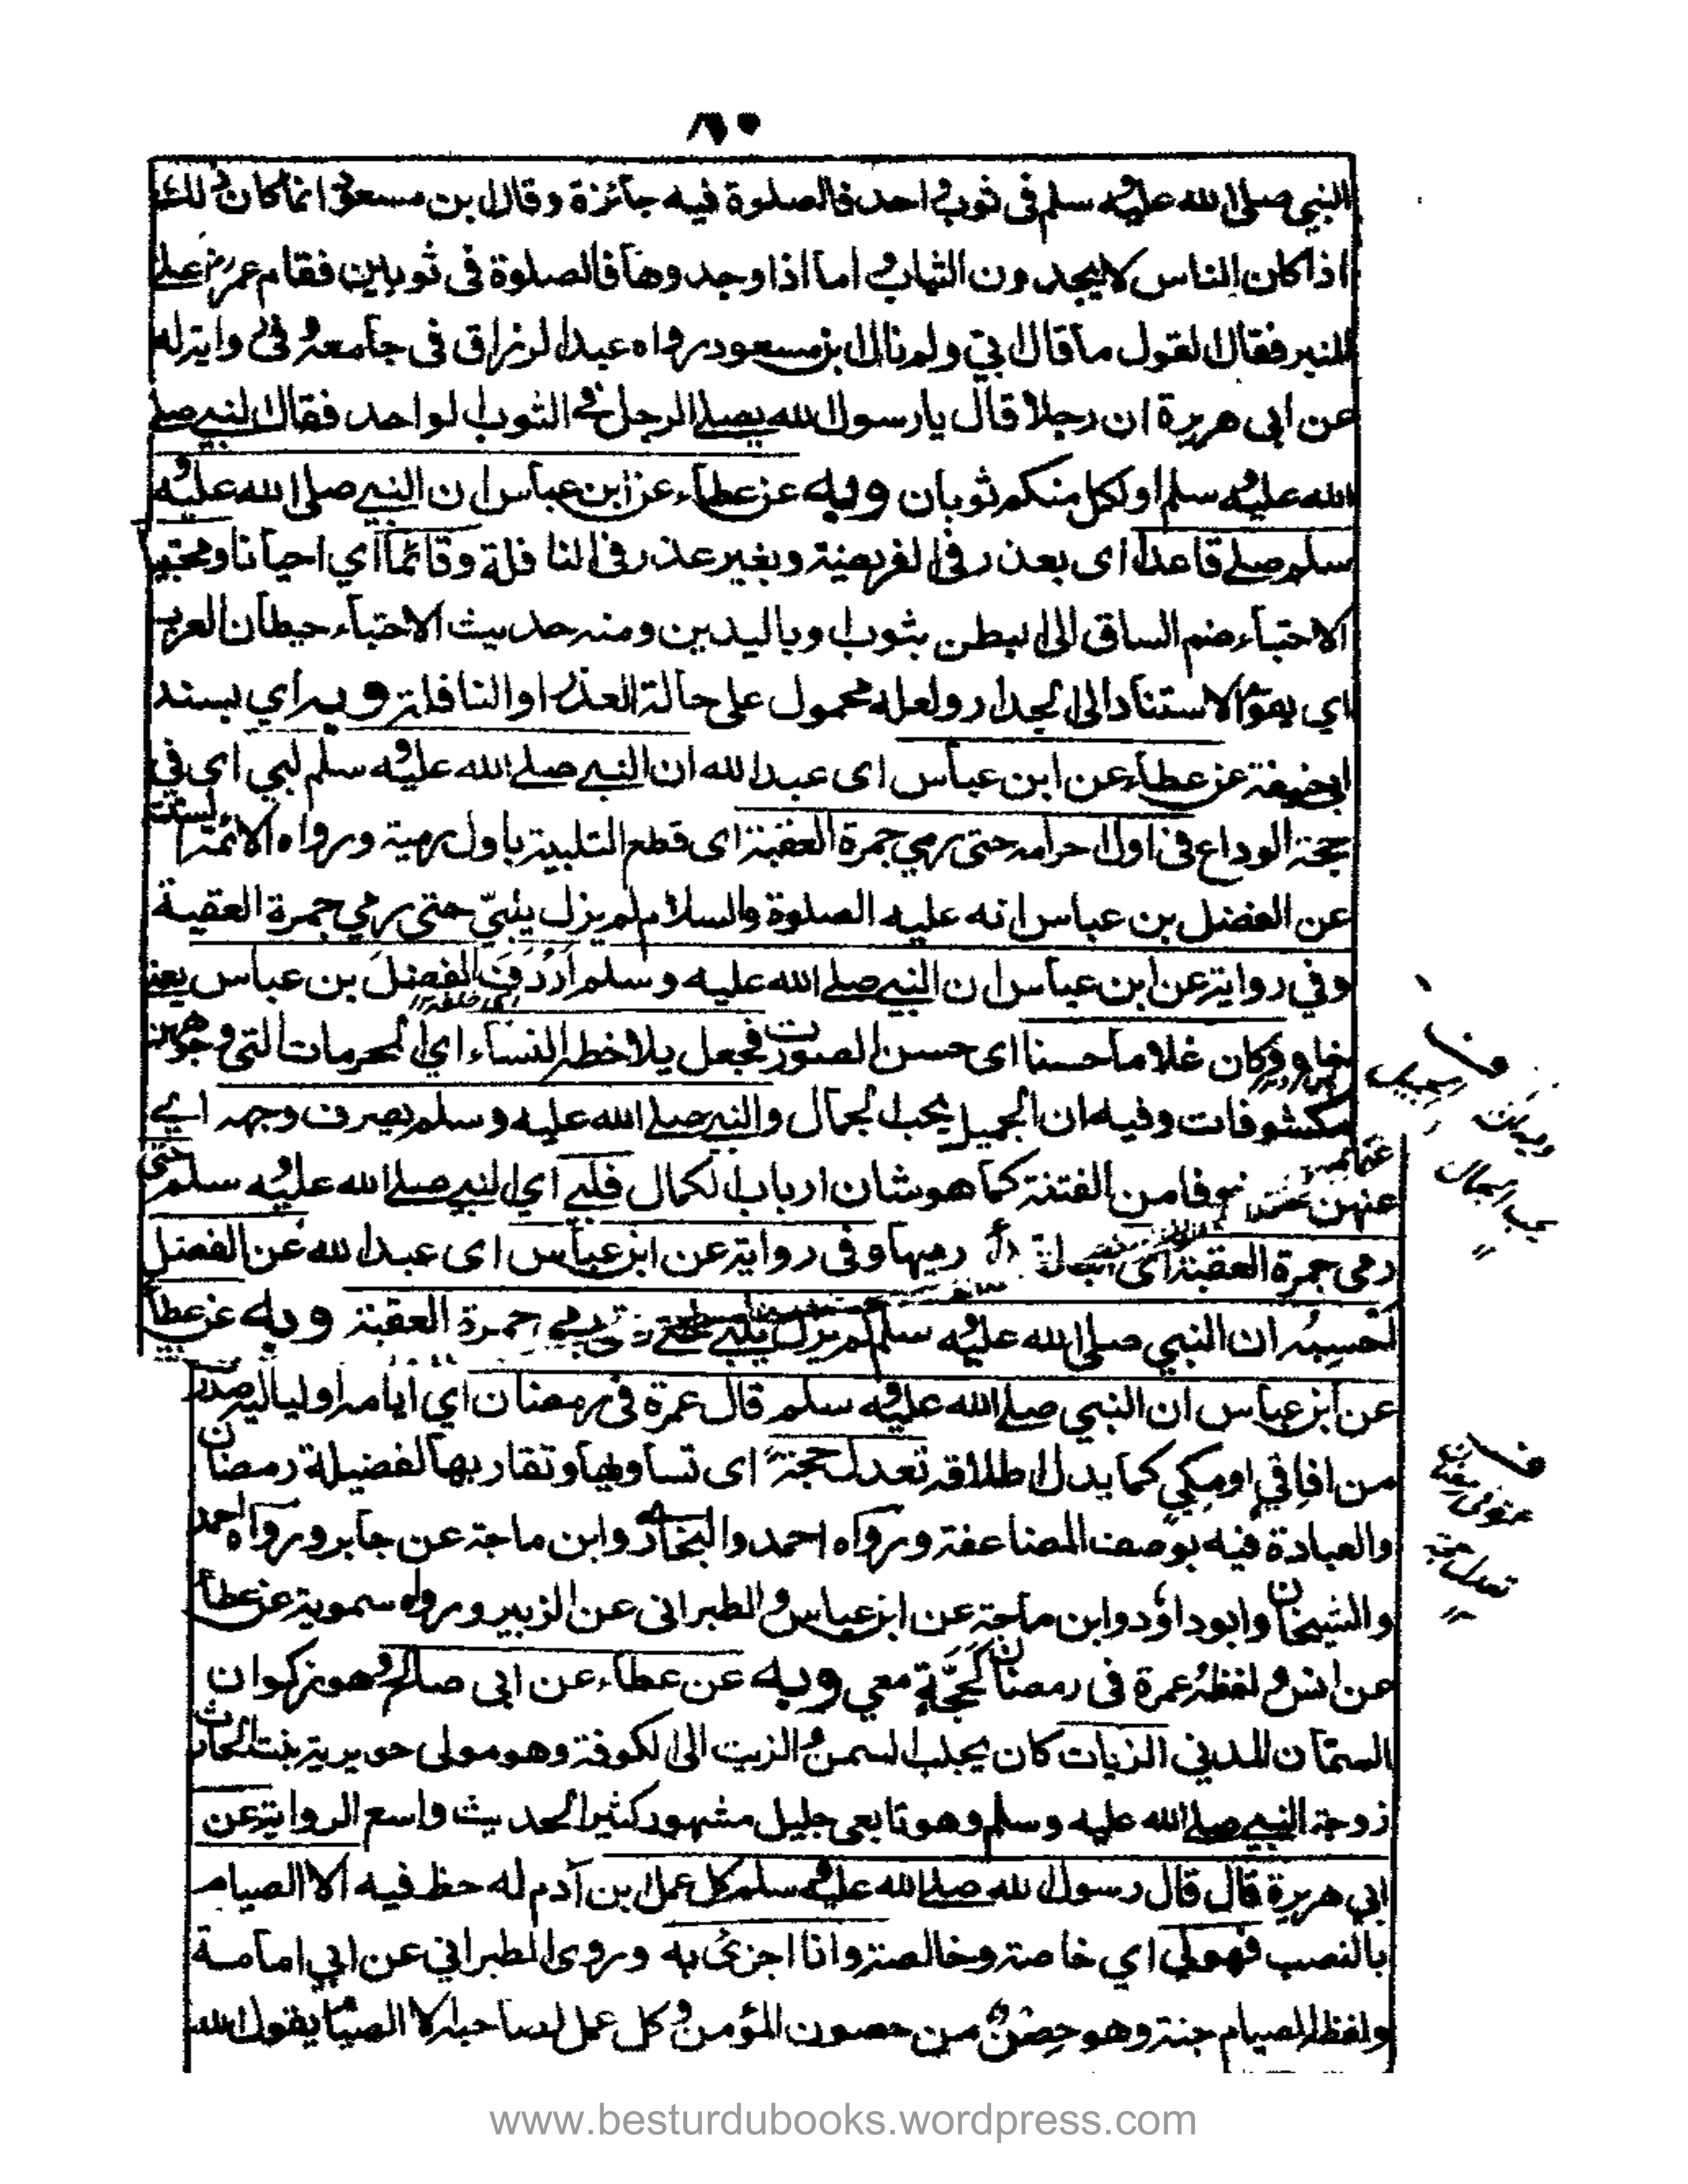 ٨٦٠
النبي صلى الله عليه وسلم في ثوب واحد فالصلوة فيه جائزة وقال ابن مسعود انما كان ذلك
اذا كان الناس لا يجدون الثياب اما اذا وجدوها فالصلوة في ثوبين فقام عمر رض على
المنبر فقال القول ما قال ابي ولم نال ابن مسعود رواه عبد الرزاق في جامعه وفي رواية له
عن ابي هريرة ان رجلا قال يا رسول الله يصلي الرجل في الثوب الواحد فقال النبي صلى
الله عليه وسلم او لكل منكم ثوبان وبه عن عطاء عن ابن عباس ان النبي صلى الله عليه و
سلم صلى قاعدا اى بعذر في الفريضة وبغير عذر في النافلة وقائما اي احيانا ومحتبيا
الاحتباء ضم الساق الى البطن بثوب او باليدين ومنه حديث الاحتباء حيطان العرب
اي يقوم الاستناد الى الجدار ولعله محمول على حالة العذر او النافلة وبه اي بسند
ابي حنيفة عن عطاء عن ابن عباس اى عبد الله ان النبي صلى الله عليه وسلم لبي اى في
حجة الوداع في اول احرامه حتى رمي جمرة العقبة اى قطع التلبية باول رمية ورواه الائمة الستة
عن الفضل بن عباس انه عليه الصلوة والسلام لم يزل يلبي حتى رمي جمرة العقبة
وفي رواية عن ابن عباس ان النبي صلى الله عليه وسلم اردف الفضل بن عباس يعنى
اخاه وكان غلاما حسنا اى حسن الصورة فجعل يلاحظ النساء اي المحرمات التي وجوههن
مكشوفات وفيه ان الجميل يحب الجمال والنبي صلى الله عليه وسلم يصرف وجهه اي
عنهن خوفا من الفتنة كما هو شان ارباب الكمال فلبى اي النبي صلى الله عليه وسلم حتى
رمى جمرة العقبة اى رميها وفي رواية عن ابن عباس اى عبد الله عن الفضل
اخيه ان النبي صلى الله عليه وسلم لم يزل يلبي حتى رمي جمرة العقبة وبه عن عطاء
عن ابن عباس ان النبي صلى الله عليه وسلم قال عمرة في رمضان اي ايامه او لياليه
من افاقي او مكي كما يدل اطلاقه تعدل حجة اى تساويها وتقاربها لفضيلة رمضان
والعبادة فيه بوصف المضاعفة ورواه احمد والبخاري وابن ماجة عن جابر ورواه احمد
والشيخان وابو داؤد وابن ماجة عن ابن عباس والطبراني عن الزبير ورواه سموية عن عطاء
عن انس ولفظه عمرة في رمضان كحجة معي وبه عن عطاء عن ابي صالح وهو ذكوان
السمان المدني الزيات كان يجلب السمن والزيت الى الكوفة وهو مولى جويرية بنت الحارث
زوجة النبي صلى الله عليه وسلم وهو تابعي جليل مشهور كثير الحديث واسع الرواية عن
ابي هريرة قال قال رسول الله صلى الله عليه وسلم كل عمل ابن آدم له حظ فيه الا الصيام
بالنصب فهو لي اي خاصة وخالصة وانا اجزئ به وروى الطبراني عن ابي امامة
ولفظ الصيام جنة وهو حصن من حصون المؤمن وكل عمل لصاحبه الا الصيام يقول الله
ف
يحب الجمال
ف
عمرة في رمضان
تعدل حجة
www.besturdubooks.wordpress.com